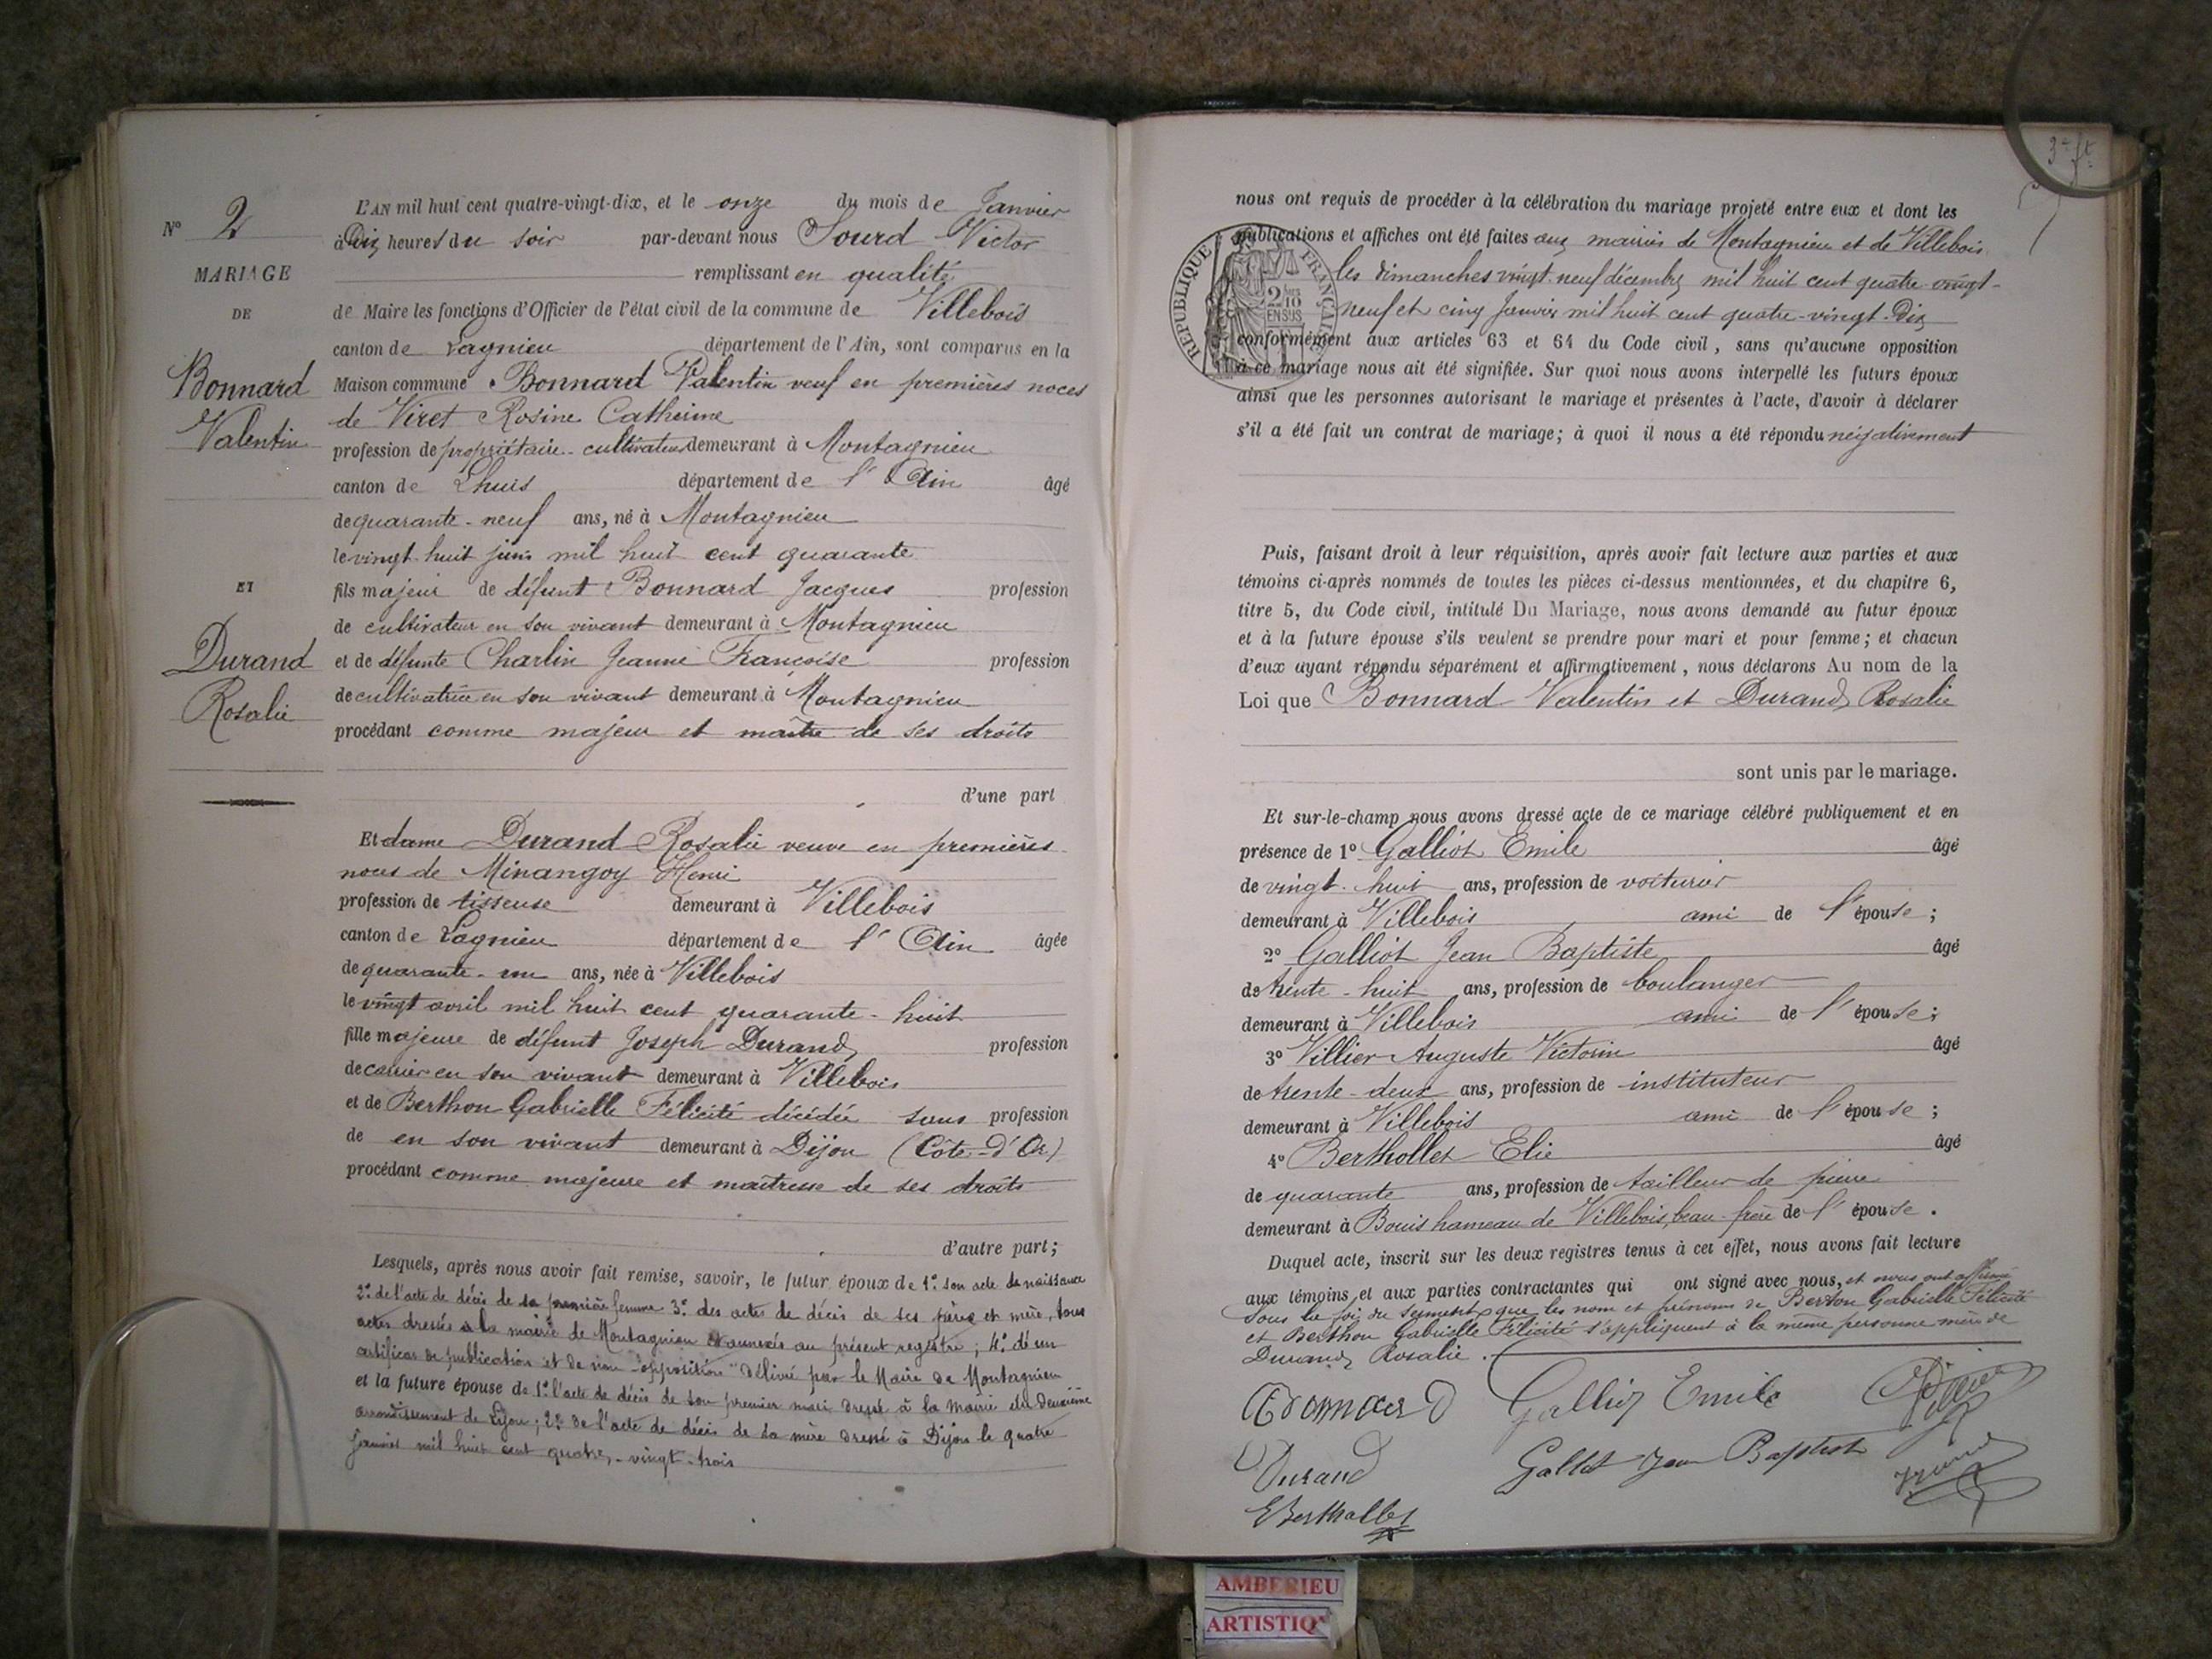 N° 2
MARIAGE
DE
Bonnard
Valentin
ET
Durand
Rosalie
L'AN mil huit cent quatre-vingt-dix, et le onze du mois de Janvier
à Dix heures du soir par-devant nous Sourd Victor
remplissant en qualité
de Maire les fonctions d'Officier de l'état civil de la commune de Villebois
canton de Lagnieu département de l'Ain, sont comparus en la
Maison commune Bonnard Valentin veuf en premières noces
de Viret Rosine Catherine
profession de propriétaire-cultivateur demeurant à Montagnieu
canton de Lhuis département de l'Ain âgé
de quarante-neuf ans, né à Montagnieu
le vingt-huit juin mil huit cent quarante
fils majeur de défunt Bonnard Jacques profession
de cultivateur en son vivant demeurant à Montagnieu
et de défunte Charlin Jeanne Françoise profession
de cultivatrice en son vivant demeurant à Montagnieu
procédant comme majeur et maître de ses droits
d'une part
Et dame Durand Rosalie veuve en premières
noces de Minangoy Henri
profession de tisseuse demeurant à Villebois
canton de Lagnieu département de l'Ain âgée
de quarante-un ans, née à Villebois
le vingt avril mil huit cent quarante-huit
fille majeure de défunt Joseph Durand profession
de carrier en son vivant demeurant à Villebois
et de Berthon Gabrielle Félicité décédée sans profession
de en son vivant demeurant à Dijon (Côte-d'Or)
procédant comme majeure et maîtresse de ses droits
d'autre part;
Lesquels, après nous avoir fait remise, savoir, le futur époux de 1° son acte de naissance
2° de l'acte de décès de sa première femme 3° des actes de décès de ses père et mère, tous
actes dressés à la mairie de Montagnieu et annexés au présent registre; 4° d'un
certificat de publication et de non-opposition délivré par le Maire de Montagnieu
et la future épouse de 1° l'acte de décès de son premier mari dressé à la mairie du deuxième
arrondissement de Lyon; 2° de l'acte de décès de sa mère dressé à Dijon le quatre
Janvier mil huit cent quatre-vingt-trois
3e ft
nous ont requis de procéder à la célébration du mariage projeté entre eux et dont les
publications et affiches ont été faites aux mairies de Montagnieu et de Villebois
les dimanches vingt-neuf décembre mil huit cent quatre-vingt-
neuf et cinq Janvier mil huit cent quatre-vingt-Dix
RÉPUBLIQUE FRANÇAISE
2/10 EN SUS
conformément aux articles 63 et 64 du Code civil, sans qu'aucune opposition
à ce mariage nous ait été signifiée. Sur quoi nous avons interpellé les futurs époux
ainsi que les personnes autorisant le mariage et présentes à l'acte, d'avoir à déclarer
s'il a été fait un contrat de mariage; à quoi il nous a été répondu négativement
Puis, faisant droit à leur réquisition, après avoir fait lecture aux parties et aux
témoins ci-après nommés de toutes les pièces ci-dessus mentionnées, et du chapitre 6,
titre 5, du Code civil, intitulé Du Mariage, nous avons demandé au futur époux
et à la future épouse s'ils veulent se prendre pour mari et pour femme; et chacun
d'eux ayant répondu séparément et affirmativement, nous déclarons Au nom de la
Loi que Bonnard Valentin et Durand Rosalie
sont unis par le mariage.
Et sur-le-champ nous avons dressé acte de ce mariage célébré publiquement et en
présence de 1° Galliot Emile âgé
de vingt-huit ans, profession de voiturier
demeurant à Villebois ami de l'épouse;
2° Galliot Jean Baptiste âgé
de trente-huit ans, profession de boulanger
demeurant à Villebois ami de l'épouse;
3° Villier Auguste Victorin âgé
de trente-deux ans, profession de instituteur
demeurant à Villebois ami de l'épouse;
4° Berthollet Elie âgé
de quarante ans, profession de tailleur de pierre
demeurant à Bouis hameau de Villebois, beau-frère de l'épouse.
Duquel acte, inscrit sur les deux registres tenus à cet effet, nous avons fait lecture
aux témoins et aux parties contractantes qui ont signé avec nous, et nous ont affirmé
sous la foi du serment que les nom et prénoms de Berton Gabrielle Félicité
et Berthon Gabrielle Félicité s'appliquent à la même personne mère de
Durand Rosalie.
Bonnard Galliot Emile Villier
Durand Galliot Jean Baptiste
E Berthollet
AMBERIEU
ARTISTIQ